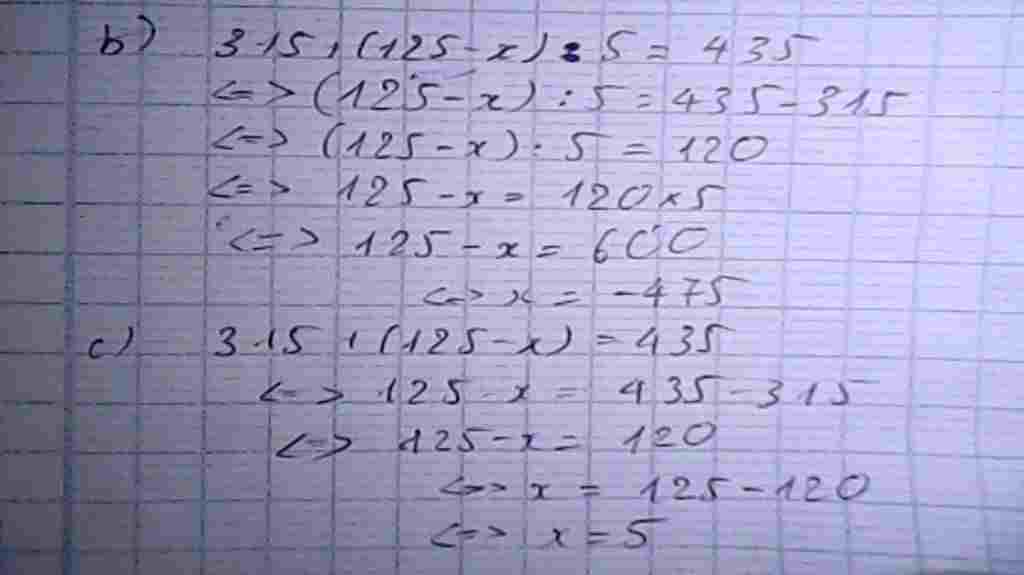 b) 315 + (125 - x) : 5 = 435
<=> (125 - x) : 5 = 435 - 315
<=> (125 - x) : 5 = 120
<=> 125 - x = 120 x 5
<=> 125 - x = 600
<=> x = -475
c) 315 + (125 - x) = 435
<=> 125 - x = 435 - 315
<=> 125 - x = 120
<=> x = 125 - 120
<=> x = 5